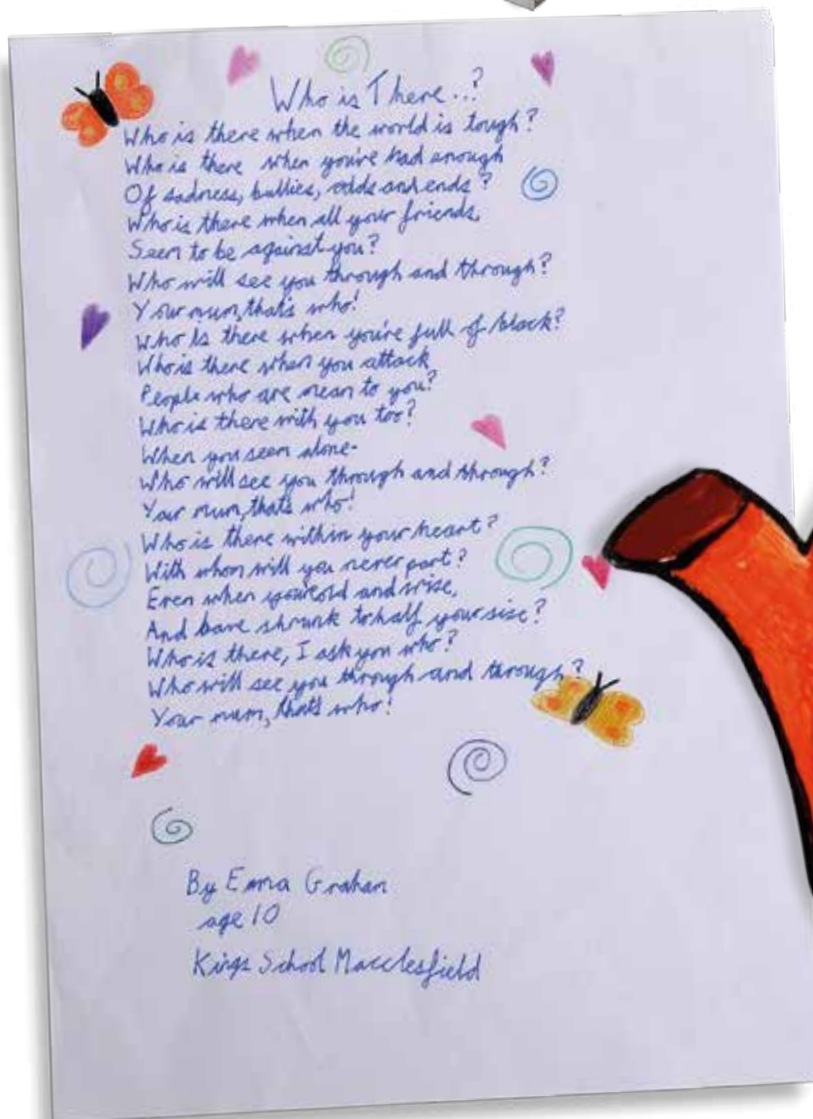 Who is There..?
Who is there when the world is tough?
Who is there when you've had enough
Of sadness, bullies, odds and ends?
Who is there when all your friends,
Seem to be against you?
Who will see you through and through?
Your mum, that's who!
Who Is there when you're full of black?
Who is there when you attack
People who are mean to you?
Who is there with you too?
When you seem alone-
Who will see you through and through?
Your mum, that's who!
Who is there within your heart?
With whom will you never part?
Even when you'r old and wise,
And have shrunk to half your size?
Who is there, I ask you who?
Who will see you through and through?
Your mum, that's who!
By Emma Graham
age 10
Kings School Macclesfield